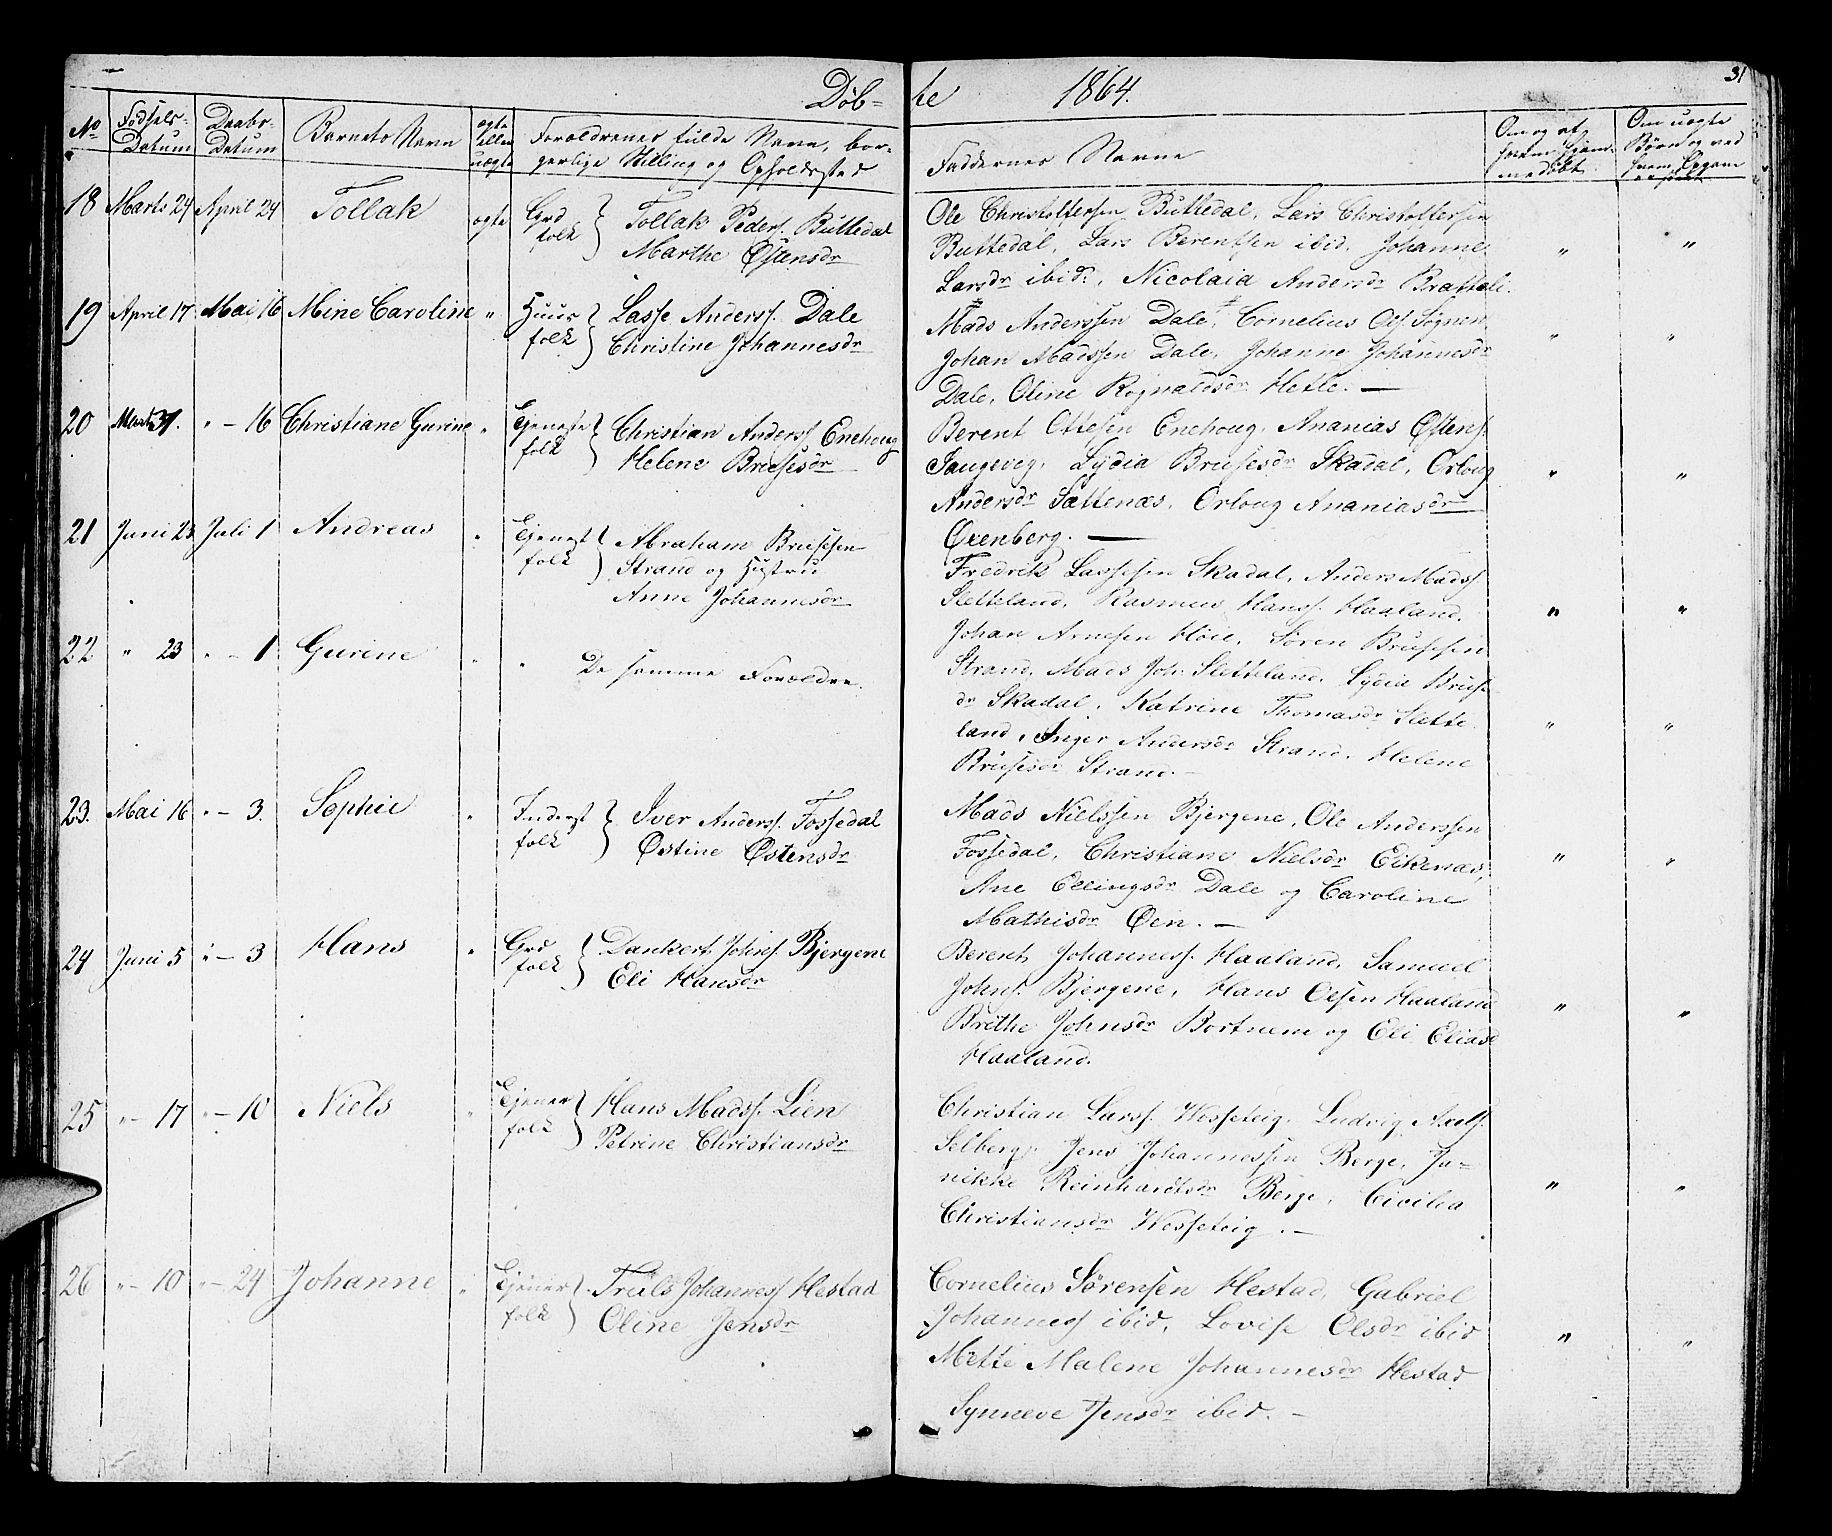 Døb- te 1864. 31
No Fødsels-Datum Daabs-Datum Barnets Navn ægte eller uægte Forældrenes fulde Navn, bor-
gerlige Stilling og Opholdssted Faddernes Navne Om og af hvem hjem-
medøbt Om uægte Børn og ved hvem Opgave er skeet
18 Marts 24 April 24 Tollak ægte Grd folk Tollak Peders. Buttedal
Marthe Østensdr
Ole Christoffersen Buttedal, Lars Christoffersen
Buttedal, Lars Berentsen ibid, Johanne
Larsdr ibid:, Nicolaia Andersdr Brattali. " "
19 April 17 Mai 16 Mine Caroline " Huus folk Lasse Anderss. Dale
Christine Johannesdr
Mads Anderssen Dale, Cornelius Ols. Sognen,
Johan Madssen Dale, Johanne Johannesdr
Dale, Oline Rognaldsdr Hetle. — " "
20 Marts 31. " - 16 Christiane Gurine " Tjeneste folk Christian Anderss Enehoug
Helene Brusesdr
Berent Ottesen Enehoug, Ananias Østens.
Saugeveg, Lydia Brusesdr Skadal, Orloug
Andersdr Sættenæs, Orloug Ananiasdr
Øxenberg. — " "
21 Juni 23 Juli 1 Andreas " Tjenest folk Abraham Brusesen
Strand og Hustru
Anne Johannesdr
Fredrik Lassesen Skadal, Anders Madss
Sletteland, Rasmus Hanss. Haaland,
Johan Arnesen Høie, Søren Brusesen
22 " 23 " - 1 Gurine " " De samme Forældre.
Strand, Mads Joh. Sletteland, Lydia Bruse
dr Skadal, Katrine Thomasdr Slette
land, Inger Andersdr Strand, Helene
Brusesdr Strand. - " "
23. Mai 16 " - 3. Sophie " Inderst folk Iver Anderss. Fossedal
Østine Østensdr
Mads Nielssen Bjergene, Ole Anderssen
Fossedal, Christiane Nielsdr Eikenæs,
Ane Ellingsdr Dale og Caroline
Mathisdr Øen. — " "
24 Juni 5 " - 3 Hans " Grd folk Dankert Johns. Bjergene
Eli Hansdr
Berent Johanness. Haaland, Samuel
Johns. Bjergene, Hans Olsen Haaland
Brithe Johnsdr Bortnem og Eli Eliasd
Haaland. " "
25 " - 17 " - 10 Niels " Tjener folk Hans Madss. Lien
Petrine Christiansdr
Christian Larss. Hesseteig, Ludvig Axels.
Selberg, Jens Johannessen Berge, Ja-
nikke Reinhardtsdr Berge, Cicilia
Christiansdr Hesseteig. - " "
26 " - 10 " - 24 Johanne " Tjener folk Truls Johanness Hestad
Oline Jensdr
Cornelius Sørensen Hestad, Gabriel
Johanness ibid, Lovise Olsdr ibid
Mette Malene Johannesdr Hestad
Synneve Jensdr ibid. - " "